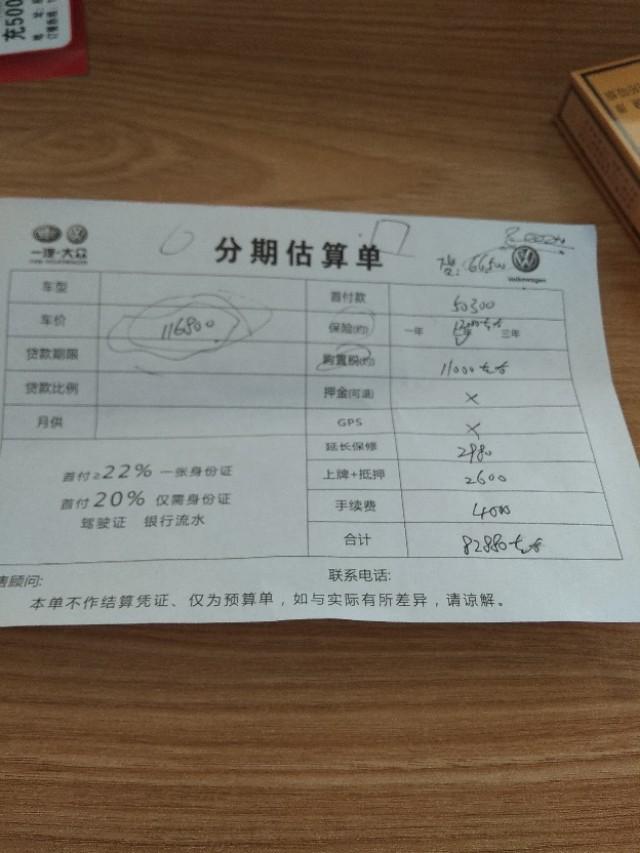 充500
一汽-大众
分期估算单
Volkswagen
车型
车价 116800
贷款期限
贷款比例
月供
首付款 50300
保险(约) 一年 三年
购置税(约) 11000左右
押金(可退) ×
GPS ×
延长保修 2980
上牌+抵押 2600
手续费 4000
合计 82880左右
首付≥22% 一张身份证
首付20% 仅需身份证
驾驶证 银行流水
售顾问:
联系电话:
本单不作结算凭证、仅为预算单，如与实际有所差异，请谅解。